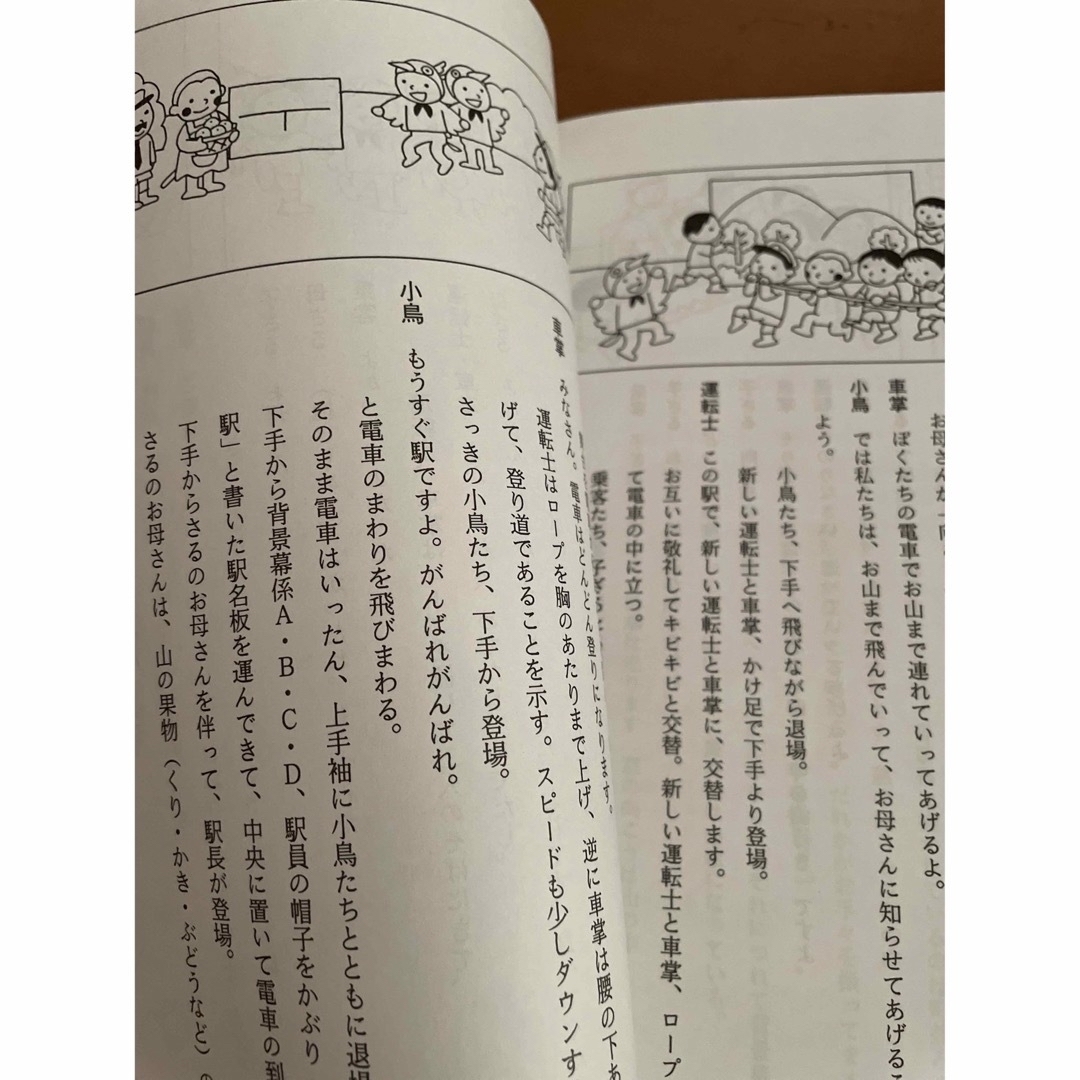 お母さんが一
車掌 ぼくたちの電車でお山まで連れていってあげるよ。
小鳥 では私たちは、お山まで飛んでいって、お母さんに知らせてあげるこ
よう。
小鳥たち、下手へ飛びながら退場。
新しい運転士と車掌、かけ足で下手より登場。
運転士 この駅で、新しい運転士と車掌に、交替します。
お互いに敬礼してキビキビと交替。新しい運転士と車掌、ロープ
て電車の中に立つ。
乗客たち、子ざる
車掌 みなさん。電車はどんどん登りになります。
運転士はロープを胸のあたりまで上げ、逆に車掌は腰の下あ
げて、登り道であることを示す。スピードも少しダウンす
さっきの小鳥たち、下手から登場。
小鳥 もうすぐ駅ですよ。がんばれがんばれ。
と電車のまわりを飛びまわる。
そのまま電車はいったん、上手袖に小鳥たちとともに退場
下手から背景幕係A・B・C・D、駅員の帽子をかぶり
駅」と書いた駅名板を運んできて、中央に置いて電車の到
下手からさるのお母さんを伴って、駅長が登場。
さるのお母さんは、山の果物（くり・かき・ぶどうなど）の